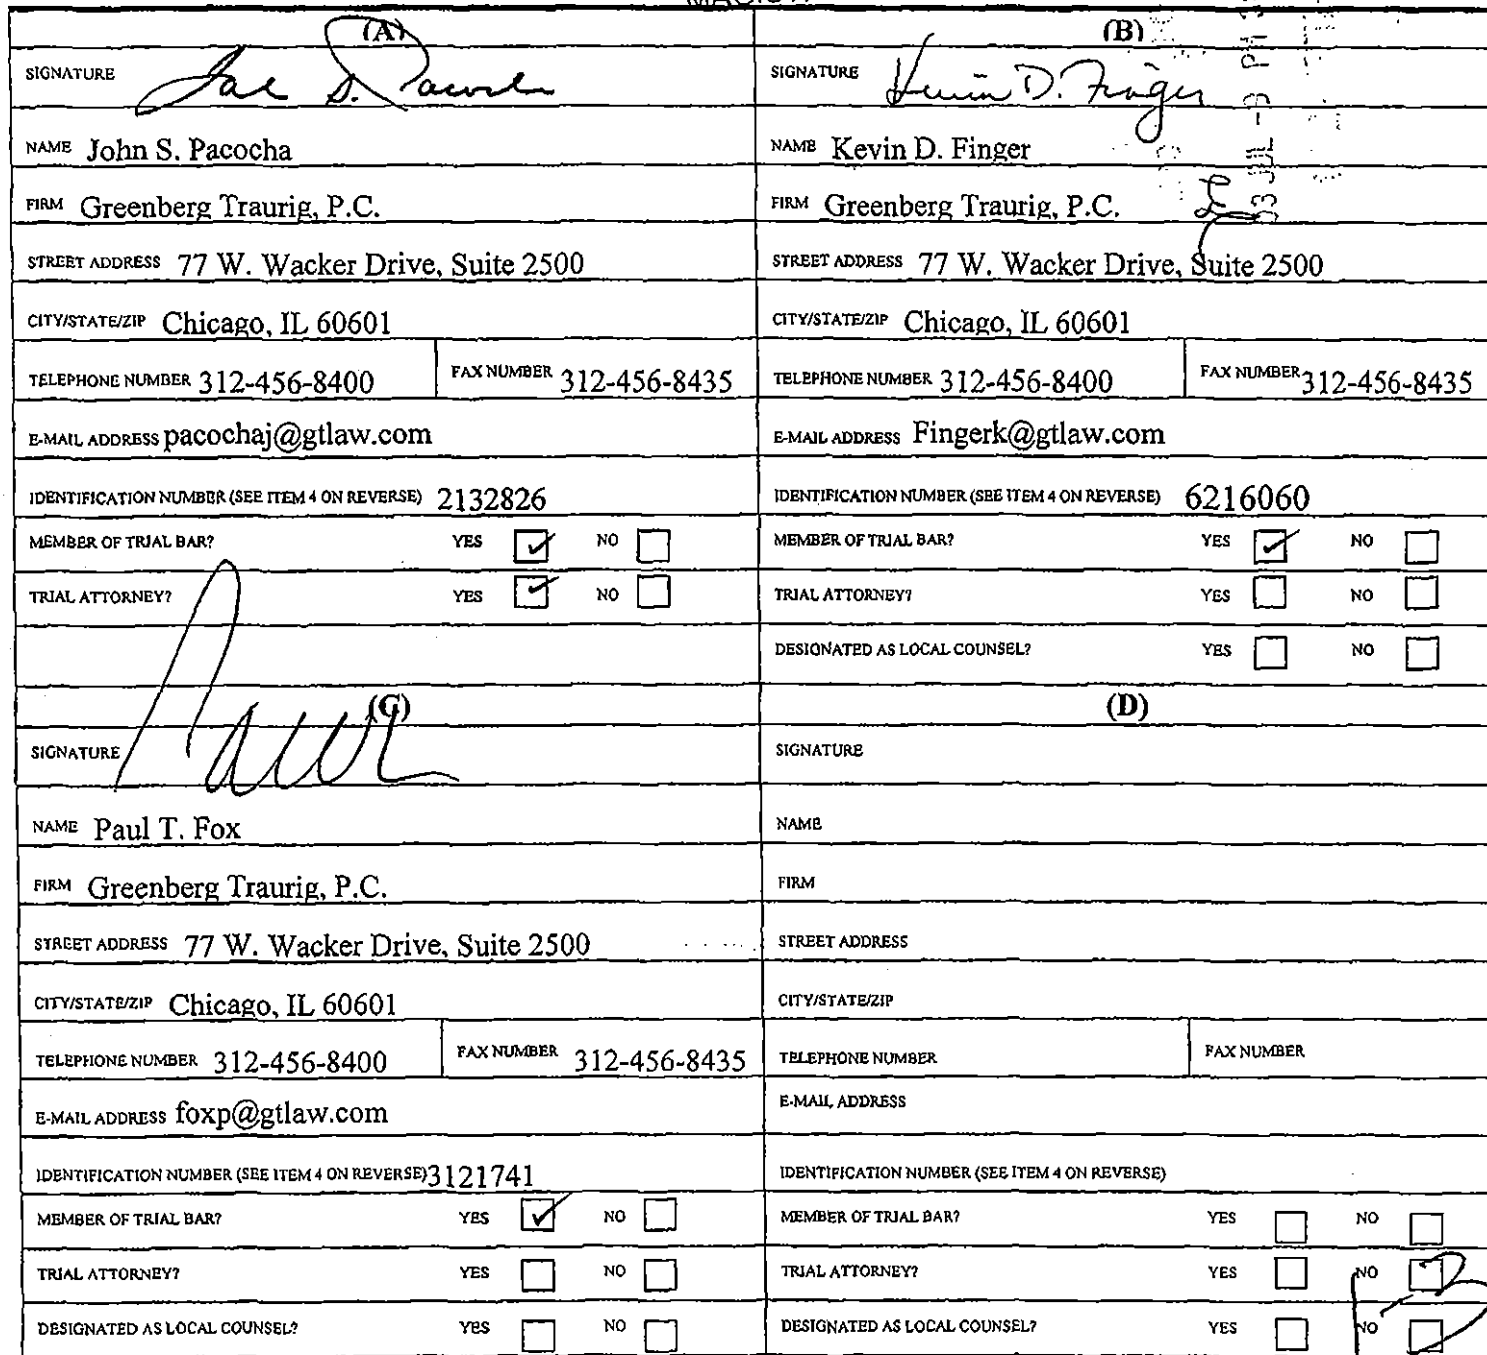 (A)
SIGNATURE
NAME John S. Pacocha
FIRM Greenberg Traurig, P.C.
STREET ADDRESS 77 W. Wacker Drive, Suite 2500
CITY/STATE/ZIP Chicago, IL 60601
TELEPHONE NUMBER 312-456-8400 FAX NUMBER 312-456-8435
E-MAIL ADDRESS pacochaj@gtlaw.com
IDENTIFICATION NUMBER (SEE ITEM 4 ON REVERSE) 2132826
MEMBER OF TRIAL BAR? YES ✓ NO
TRIAL ATTORNEY? YES ✓ NO
(B)
SIGNATURE Kevin D. Finger
NAME Kevin D. Finger
FIRM Greenberg Traurig, P.C.
STREET ADDRESS 77 W. Wacker Drive, Suite 2500
CITY/STATE/ZIP Chicago, IL 60601
TELEPHONE NUMBER 312-456-8400 FAX NUMBER 312-456-8435
E-MAIL ADDRESS Fingerk@gtlaw.com
IDENTIFICATION NUMBER (SEE ITEM 4 ON REVERSE) 6216060
MEMBER OF TRIAL BAR? YES ✓ NO
TRIAL ATTORNEY? YES NO
DESIGNATED AS LOCAL COUNSEL? YES NO
(C)
SIGNATURE
NAME Paul T. Fox
FIRM Greenberg Traurig, P.C.
STREET ADDRESS 77 W. Wacker Drive, Suite 2500
CITY/STATE/ZIP Chicago, IL 60601
TELEPHONE NUMBER 312-456-8400 FAX NUMBER 312-456-8435
E-MAIL ADDRESS foxp@gtlaw.com
IDENTIFICATION NUMBER (SEE ITEM 4 ON REVERSE) 3121741
MEMBER OF TRIAL BAR? YES ✓ NO
TRIAL ATTORNEY? YES NO
DESIGNATED AS LOCAL COUNSEL? YES NO
(D)
SIGNATURE
NAME
FIRM
STREET ADDRESS
CITY/STATE/ZIP
TELEPHONE NUMBER FAX NUMBER
E-MAIL ADDRESS
IDENTIFICATION NUMBER (SEE ITEM 4 ON REVERSE)
MEMBER OF TRIAL BAR? YES NO
TRIAL ATTORNEY? YES NO
DESIGNATED AS LOCAL COUNSEL? YES NO